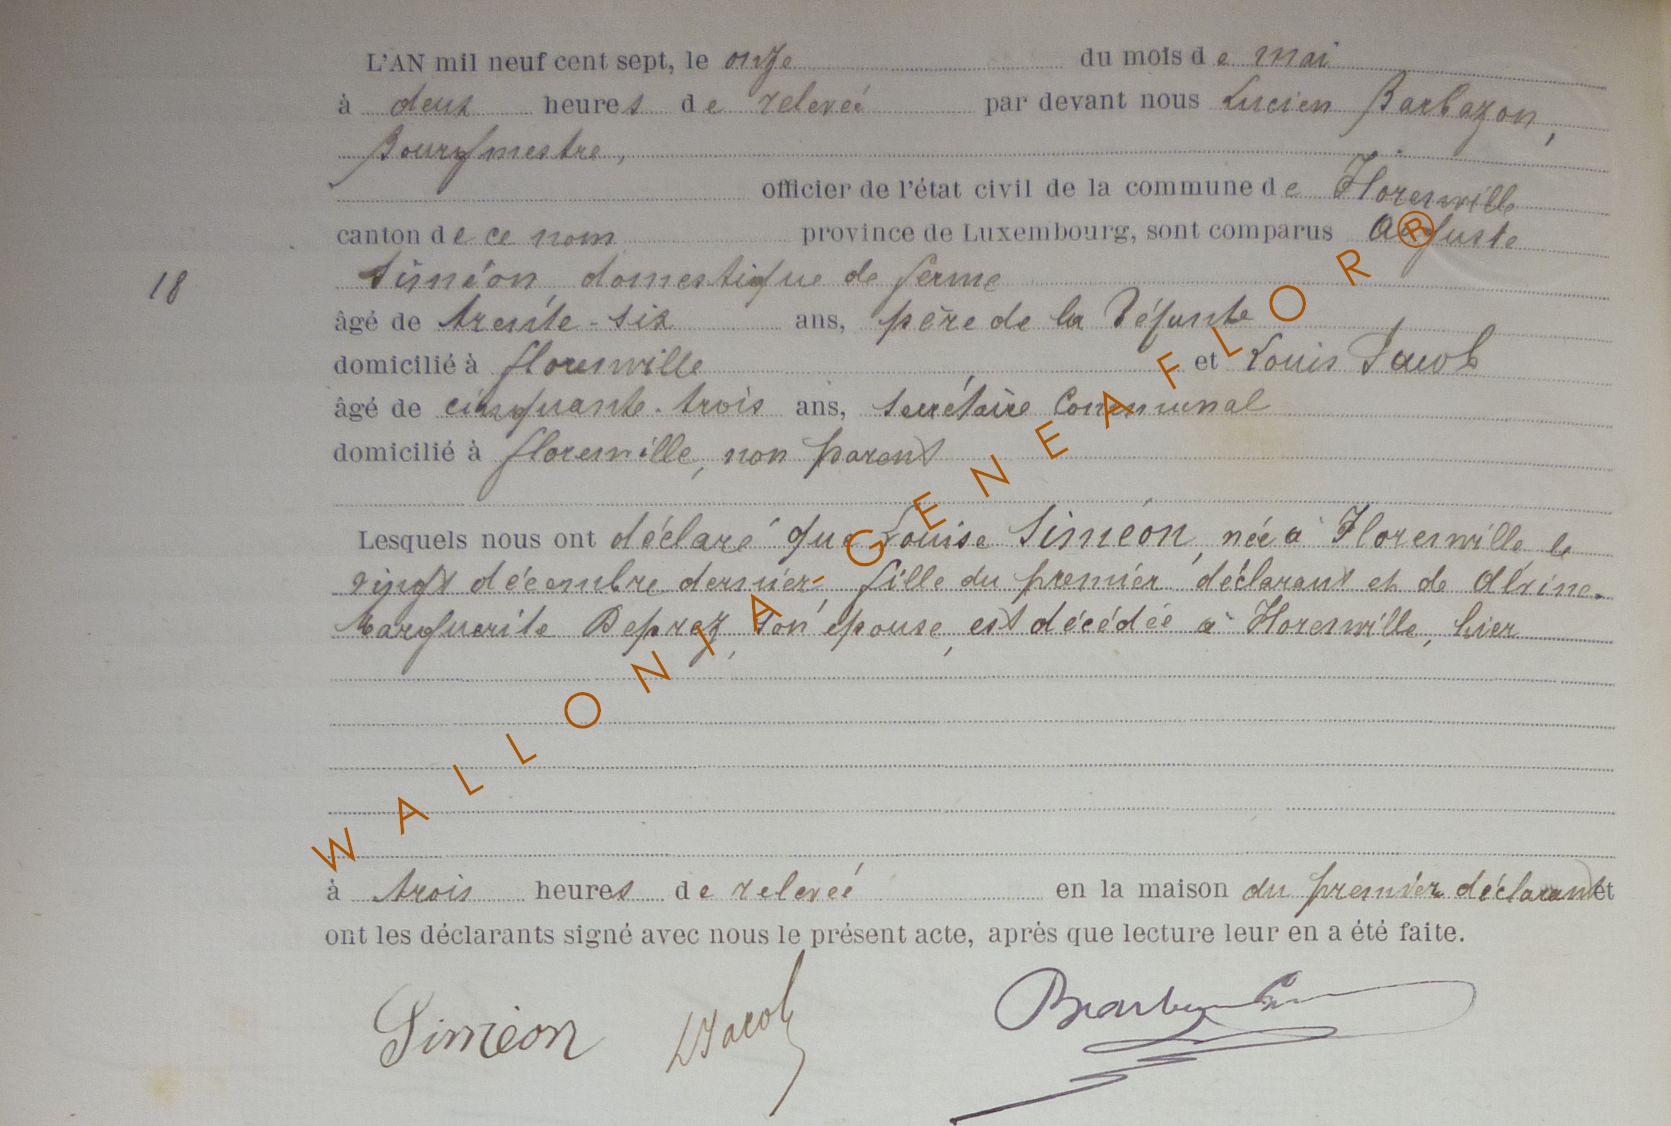 L'AN mil neuf cent sept, le onze du mois de mai
à deux heures de relevée par devant nous Lucien Barbazon,
Bourgmestre,
officier de l'état civil de la commune de Florenville
canton de ce nom province de Luxembourg, sont comparus Auguste
18 Siméon domestique de ferme
âgé de trente-six ans, père de la défunte
domicilié à florenville et Louis Jacob
âgé de cinquante-trois ans, secrétaire Communal
domicilié à florenville, non parent
Lesquels nous ont déclaré que Louise Siméon, née à Florenville le
vingt décembre dernier, fille du premier déclarant et de
Marguerite Deprez, son épouse, est décédée à Florenville, hier
à trois heures de relevée en la maison du premier déclarant et
ont les déclarants signé avec nous le présent acte, après que lecture leur en a été faite.
Siméon LJacob
WALLONIA GENEAFLOR ®